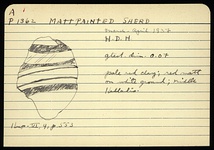 A
P 1362 MATTPAINTED SHERD
April 1933
H.D.H
great. dim. 0.07
pale red clay; red matt
on white ground; Middle
Helladic.